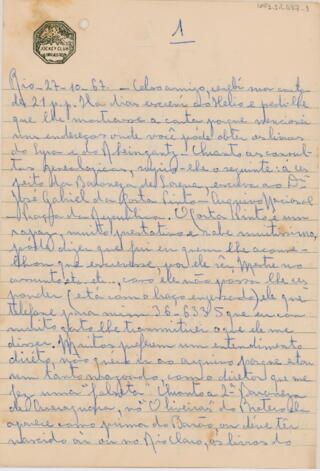 1
JOCKEY CLUB
Rio-27-10-67. - Celso amigo, recebi sua carta
de 21 p.p. Ha dias escrevi ao Helio e pedi-lhe
que lhe mostrasse a carta porque mencionei
uns endereços onde você pode obter os livros
do Lyra e do Rheingantz. Quanto as consultas
genealogicas, sugiro-lhe o seguinte: a res
peito da Baroneza de Lorena, escreva ao Dr.
José Gabriel da Costa Pinto - Arquivo Nacional
- Praça da Republica. O Costa Pinto é um
rapaz muito prestativo e sabe muito -
pode dizer que fui eu quem lhe aconse
lhou que escrevesse, por ele ser Mestre no
assunto etc. etc., caso ele não possa lhe res
ponder (está com o braço engessado) ele que
telefone para mim 36-6335 que eu com
muito gosto lhe transmitirei o que ele me
disser. Muitos preferem um entendimento
direto, não quero ir ao arquivo porque estou
um tanto zangado, com o diretor que me
fez uma "falseta". Quanto a 2ª Baroneza
de Araraquara, no "Oliveiras" do
aparece como prima do Barão, ou deve ter
nascido aí ou no Rio Claro, os livros do